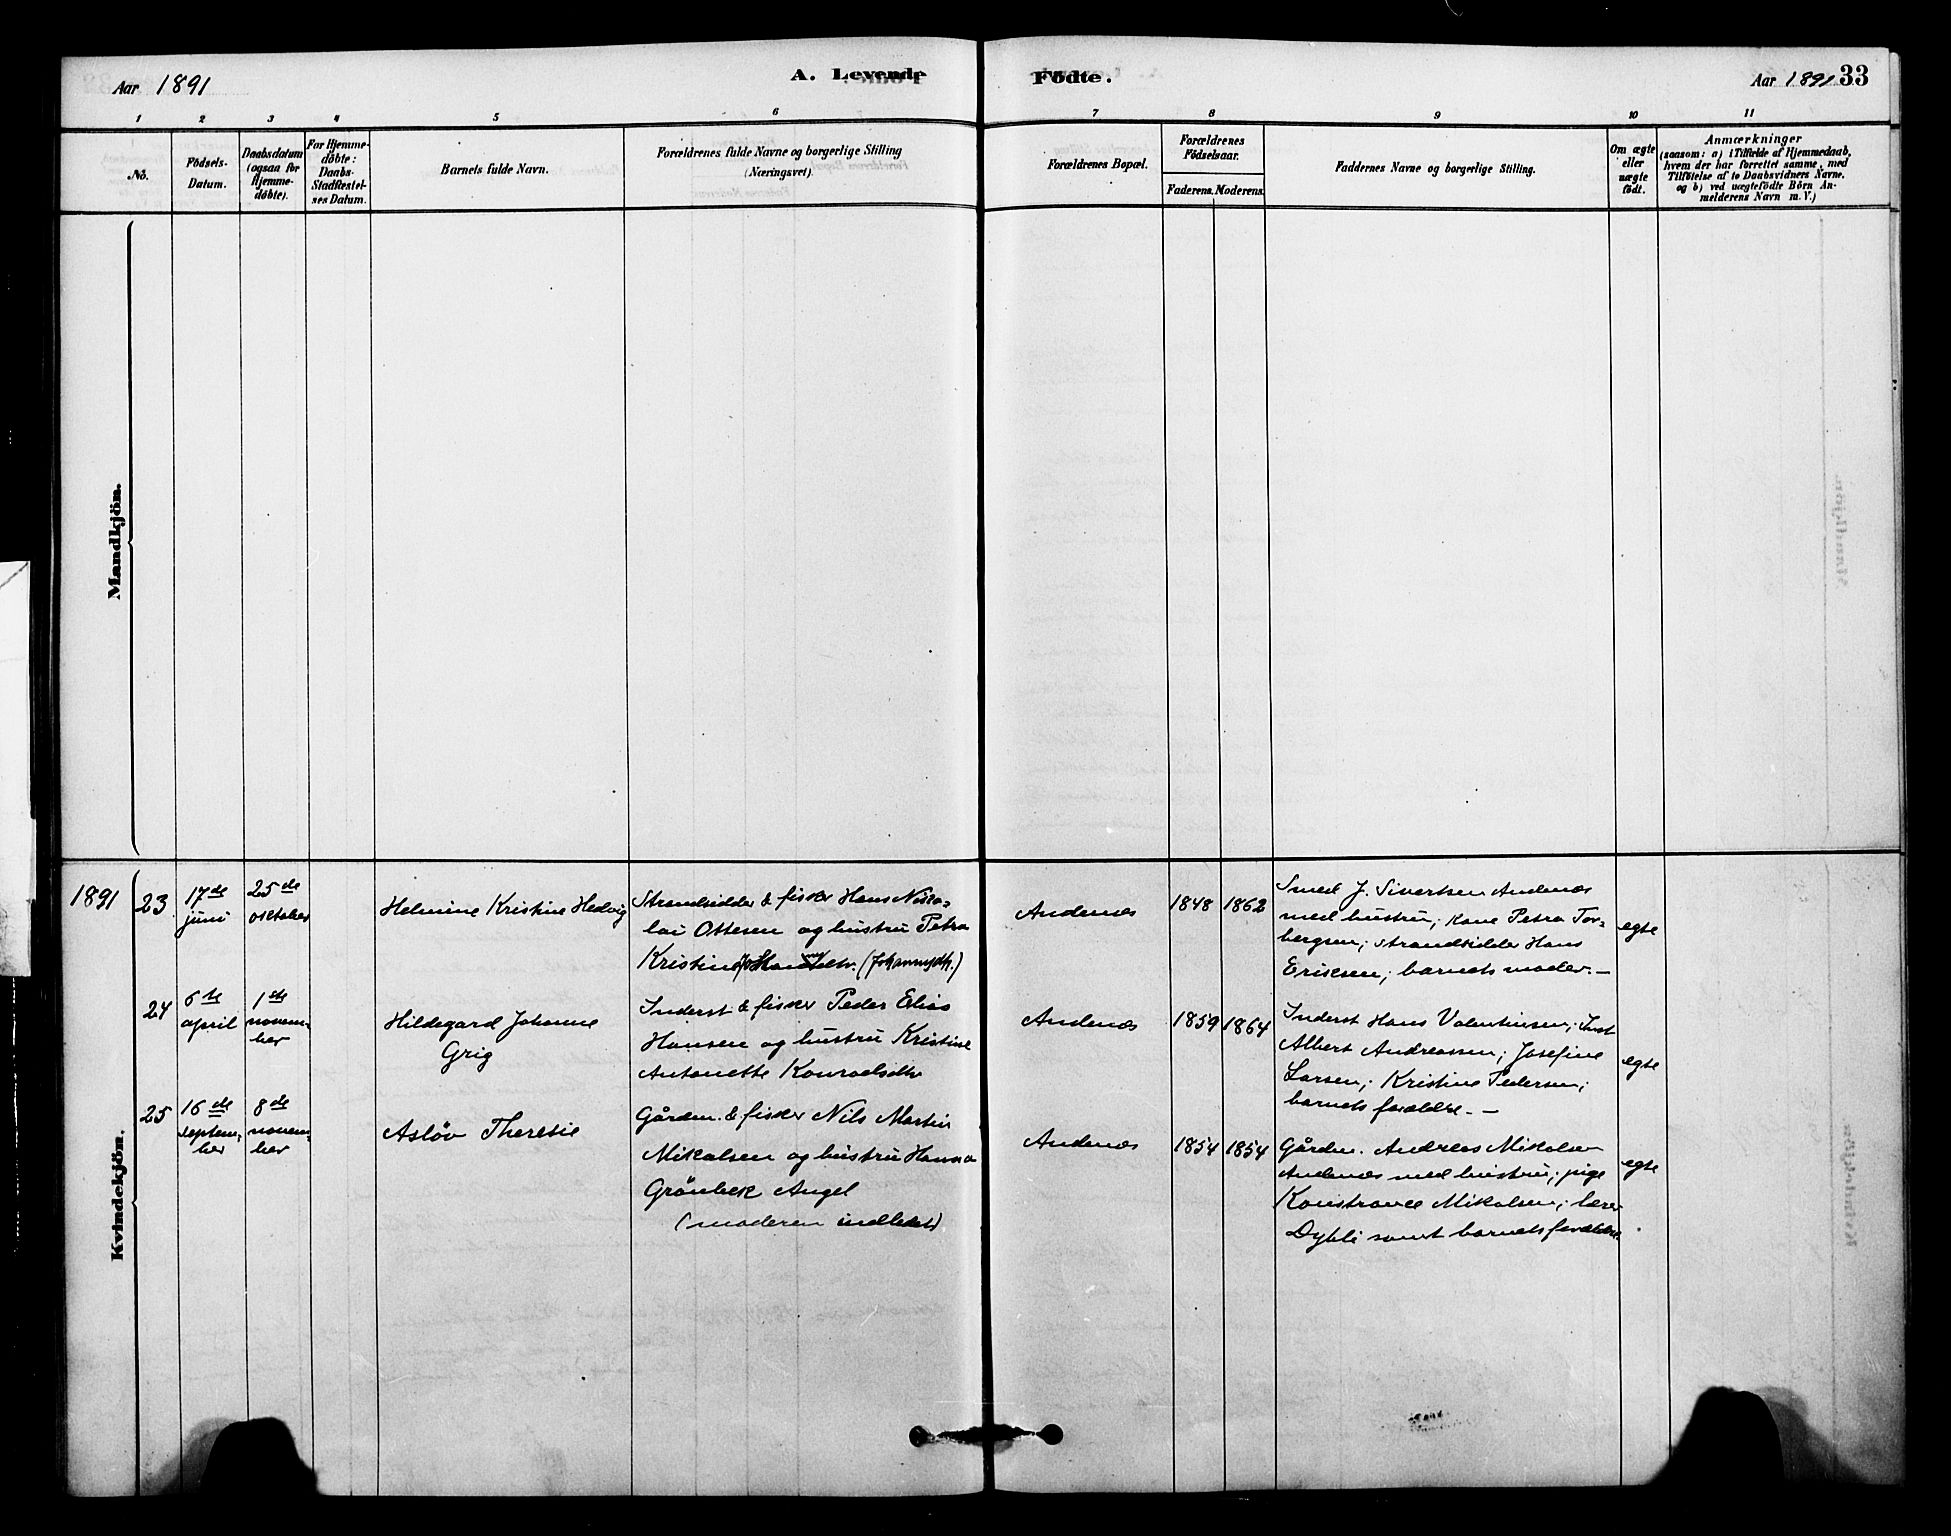 Aar 1891
A. Levende
Födte.
Aar 1891 33
1 2 3 4 5 6 7 8 9 10 11
No.
Födsels-
Datum.
Daabsdatum
(ogsaa for
Hjemme-
döbte).
For Hjemme-
döbte:
Daabs-
Stadfæstel-
ses Datum.
Barnets fulde Navn.
Forældrenes fulde Navne og borgerlige Stilling
(Næringsvei)
Forældrenes Bopæl.
Forældrenes
Födselsaar.
Faderens. Moderens.
Faddernes Navne og borgerlige Stilling.
Om ægte
eller
uægte
födt.
Anmærkninger
(saasom: a) i Tilfælde af Hjemmedaab,
hvem der har forrettet samme, med
Tilföielse af to Daabsvidners Navne,
og b) ved uægtefödte Börn An-
melderens Navn m. V.)
Mandkjön.
Kvindekjön.
1891
23
17de
juni
25de
oktober
Helmine Kristine Hedvig
Strandsidder & fisker Hans Niko-
lai Ottesen og hustru Petra
Kristine (Johannesdtr.)
Andenæs
1848
1862
Smed J. Sivertsen Andenæs
med hustru; kone Petra Tor-
bergsen; strandsidder Hans
Eriksen; barnets moder. —
egte
24
6te
april
1ste
novem-
ber
Hildegard Johanne
Grig
Inderst & fisker Peder Elias
Hansen og hustru Kristine
Antonette Konradsdtr
Andenæs
1859
1864
Inderst Hans Valentinsen; Inst
Albert Andreassen; Josefine
Larsen; Kristine Pedersen;
barnets forældre. —
egte
25
16de
septem-
ber
8de
novem-
ber
Asløv Theresie
Gårdm. & fisker Nils Martin
Mikalsen og hustru Hanna
Grönbek Angel
(moderen indledet)
Andenæs
1854
1854
Gårdm. Andreas Mikalsen
Andenæs med hustru; pige
Konstance Mikalsen; lærer
Dybli samt barnets forældre.
egte